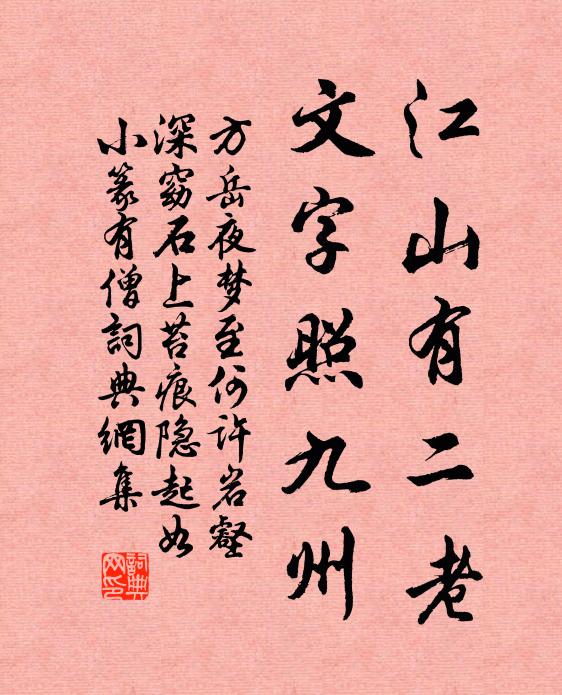 江山有二老
文字照九州
方岳夜梦至何许岩壑
深窈石上苔痕隐起如
小篆有僧詞典網集
詞典
网印